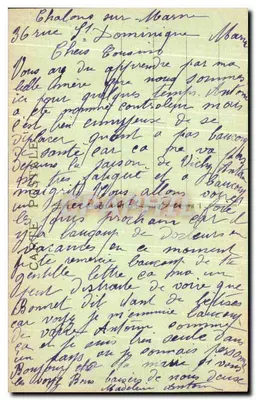 Chalons sur Marne
36 rue St Dominique Marne
Chers Cousins
Vous avez du apprendre par ma
belle mère que nous sommes
ici pour quelques temps. Antonin
a été nommé controleur mais
c'est bien ennuyeux de se
déplacer quant a pas beaucoup
de santé car ca ne va pas
depuis la saison de Vichy Antonin
très fatigué et a beaucoup
maigri
le mois prochain car il
y a beaucoup de docteurs en
vacances en ce moment
je te remercie beaucoup de ta
gentille lettre ca m'a un
peu distraite de voire que
Bonnet dit tant de bétises
car vois tu je m'ennuie beaucoup
de Antonin comme
ca et je suis bien seule dans
un pays ou je connais personne
Bonjour
Bons baisers de nous deux
Madeleine Antonin
CARTE POSTALE